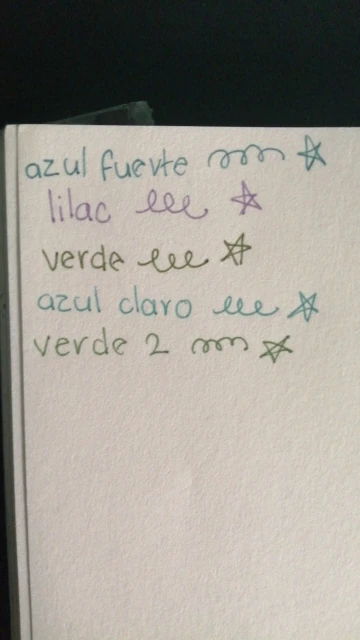 azul fuerte
lilac
verde
azul claro
verde 2